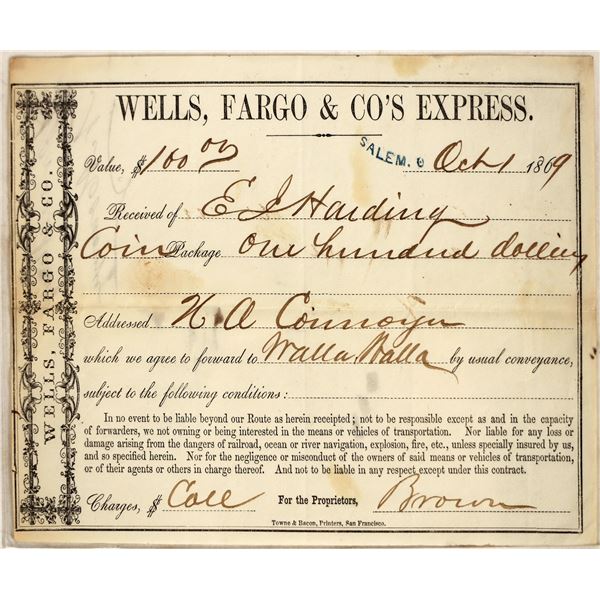 WELLS, FARGO & CO.
WELLS, FARGO & CO'S EXPRESS.
Value, $100 00 SALEM. O Oct 1 1869
Received of E J Harding
Coin Package One hundred dollars
Addressed H. A Connoyer
which we agree to forward to Walla Walla by usual conveyance,
subject to the following conditions:
In no event to be liable beyond our Route as herein receipted; not to be responsible except as and in the capacity
of forwarders, we not owning or being interested in the means or vehicles of transportation. Nor liable for any loss or
damage arising from the dangers of railroad, ocean or river navigation, explosion, fire, etc., unless specially insured by us,
and so specified herein. Nor for the negligence or misconduct of the owners of said means or vehicles of transportation,
or of their agents or others in charge thereof. And not to be liable in any respect except under this contract.
Charges, $ Coll For the Proprietors, Brown
Towne & Bacon, Printers, San Francisco.